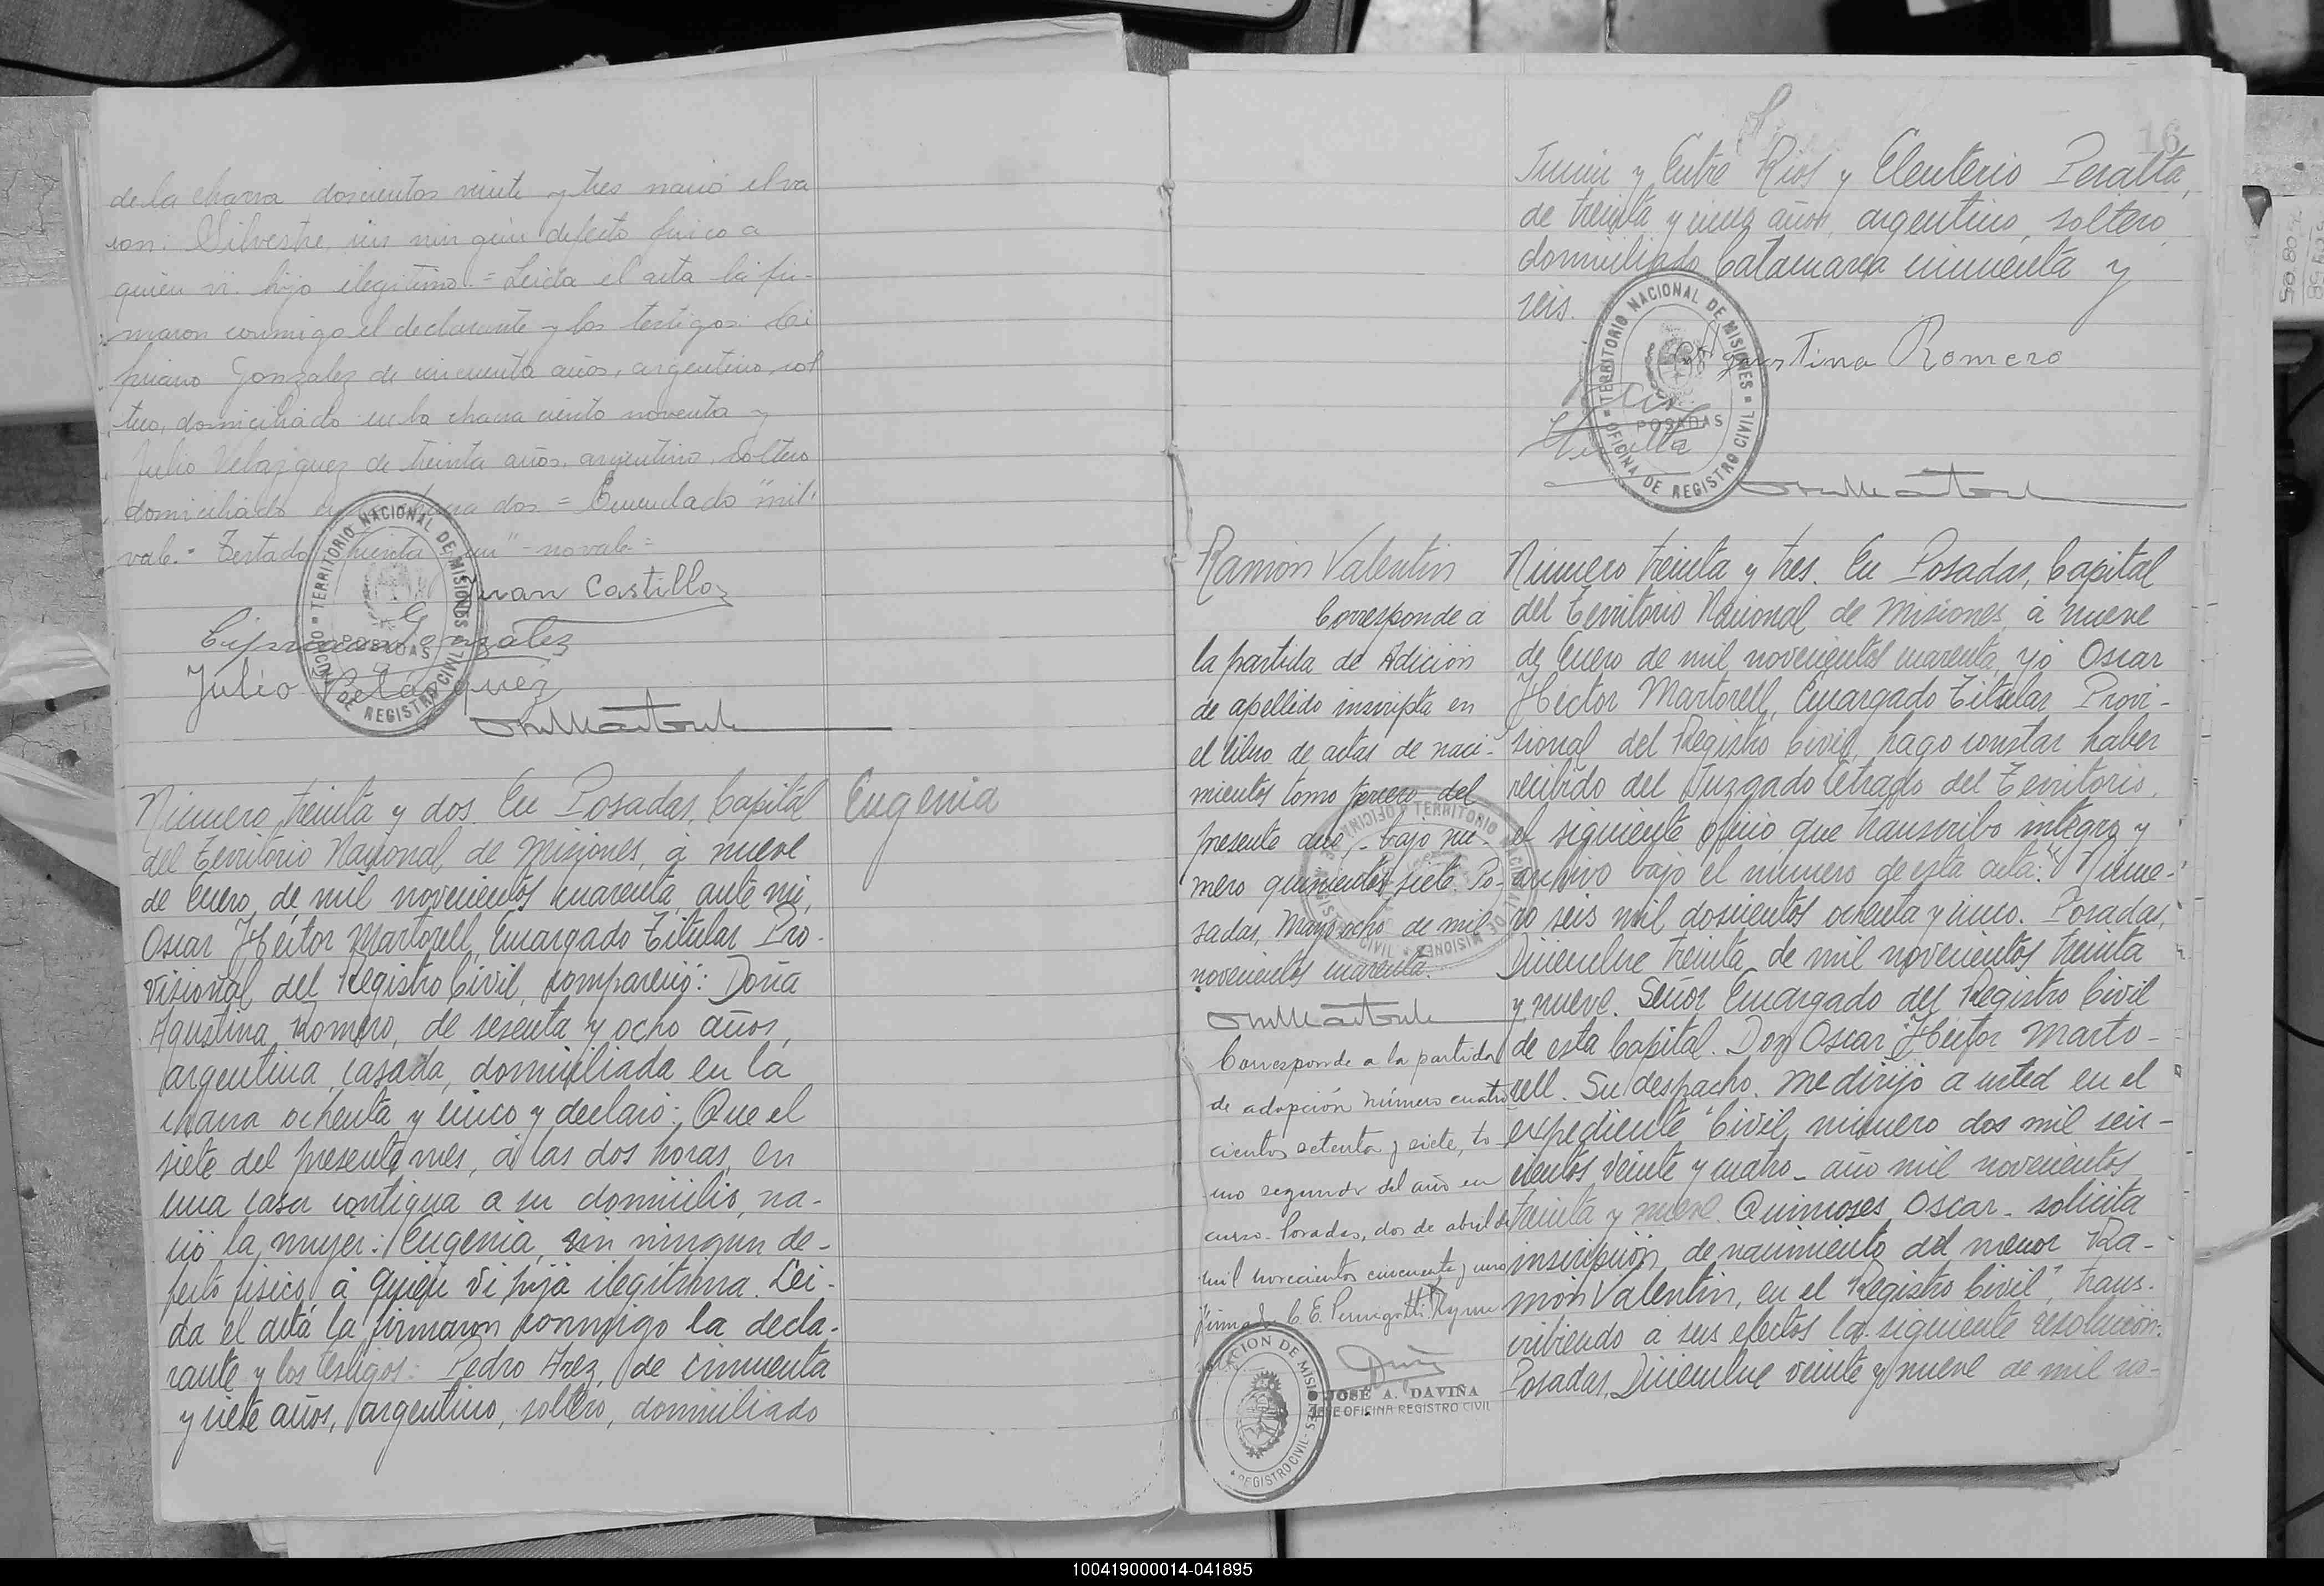 de la chacra doscientos veinte y tres nació el va
ron: Silvestre, sin ningún defecto físico a
quien vi. hijo ilegítimo. = Leída el acta la fir-
maron conmigo el declarante y los testigos: Ci
priano Gonzalez de cincuenta años, argentino, sol
tero, domiciliado en la chacra ciento noventa y
Julio Velazquez de treinta años, argentino, soltero
domiciliado en chacra dos = Enmendado "mil"
vale. = Testado - no vale =
Juan Castillo
Cipriano Gonzalez
Julio Velazquez
Numero treinta y dos. En Posadas, Capital
del Territorio Nacional de Misiones, á nueve
de Enero de mil novecientos cuarenta, ante mi,
Oscar Héctor Martorell, Encargado Titular Pro-
visional del Registro Civil, compareció: Doña
Agustina Romero, de sesenta y ocho años,
argentina, casada, domiciliada en la
chacra ochenta y cinco y declaró: Que el
siete del presente mes, á las dos horas, en
una casa contigua a su domicilio, na-
ció la mujer: Eugenia, sin ningun de-
fecto físico, á quien vi hija ilegítima. Leí-
da el acta la firmaron conmigo la decla-
rante y los testigos: Pedro Arez, de cincuenta
y siete años, argentino, soltero, domiciliado
Eugenia
16
Junin y Entre Rios y Eleuterio Peralta,
de treinta y cinco años, argentino, soltero,
domiciliado Catamarca cincuenta y
seis.
TERRITORIO NACIONAL DE MISIONES
POSADAS
OFICINA DE REGISTRO CIVIL
Agustina Romero
Ramón Valentin
Corresponde á
la partida de Adición
de apellido inscripta en
el libro de actas de naci-
mientos tomo tercero del
presente año - bajo nú-
mero quinientos siete. Po-
sadas, Mayo ocho de mil
novecientos cuarenta.
Corresponde a la partida
de adopción número cuatro
cientos setenta y siete, to
mo segundo del año en
curso. Posadas, dos de abril de
mil novecientos cincuenta y uno
JOSÉ A. DAVIÑA
JEFE OFICINA REGISTRO CIVIL
Número treinta y tres. En Posadas, Capital
del Territorio Nacional de Misiones, á nueve
de Enero de mil novecientos cuarenta, yó Oscar
Héctor Martorell, Encargado Titular Provi-
sional del Registro Civil, hago constar haber
recibido del Juzgado Letrado del Territorio,
el siguiente oficio que transcribo integro y
archivo bajo el número de esta acta: "Núme-
ro seis mil doscientos ochenta y cinco. Posadas,
Diciembre treinta de mil novecientos treinta
y nueve. Señor Encargado del Registro Civil
de esta Capital. Don Oscar Héctor Marto-
rell. Su despacho. Me dirijo a usted en el
expediente "Civil, número dos mil seis-
cientos veinte y cuatro - año mil novecientos
treinta y nueve. Quimoses Oscar - solicita
inscripción de nacimiento del menor Ra-
món Valentin, en el Registro Civil", trans-
cribiendo a sus efectos la siguiente resolución:
Posadas, Diciembre veinte y nueve de mil no-
100419000014-041895